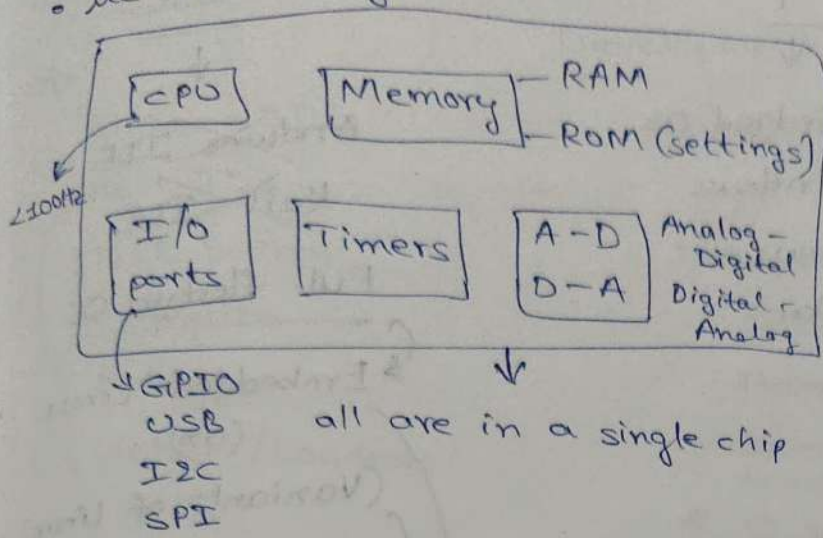 CPU
Memory
RAM
ROM (settings)
<100Hz
I/O
ports
Timers
A-D
D-A
Analog-
Digital
Digital-
Analog
GPIO
USB
I2C
SPI
all are in a single chip